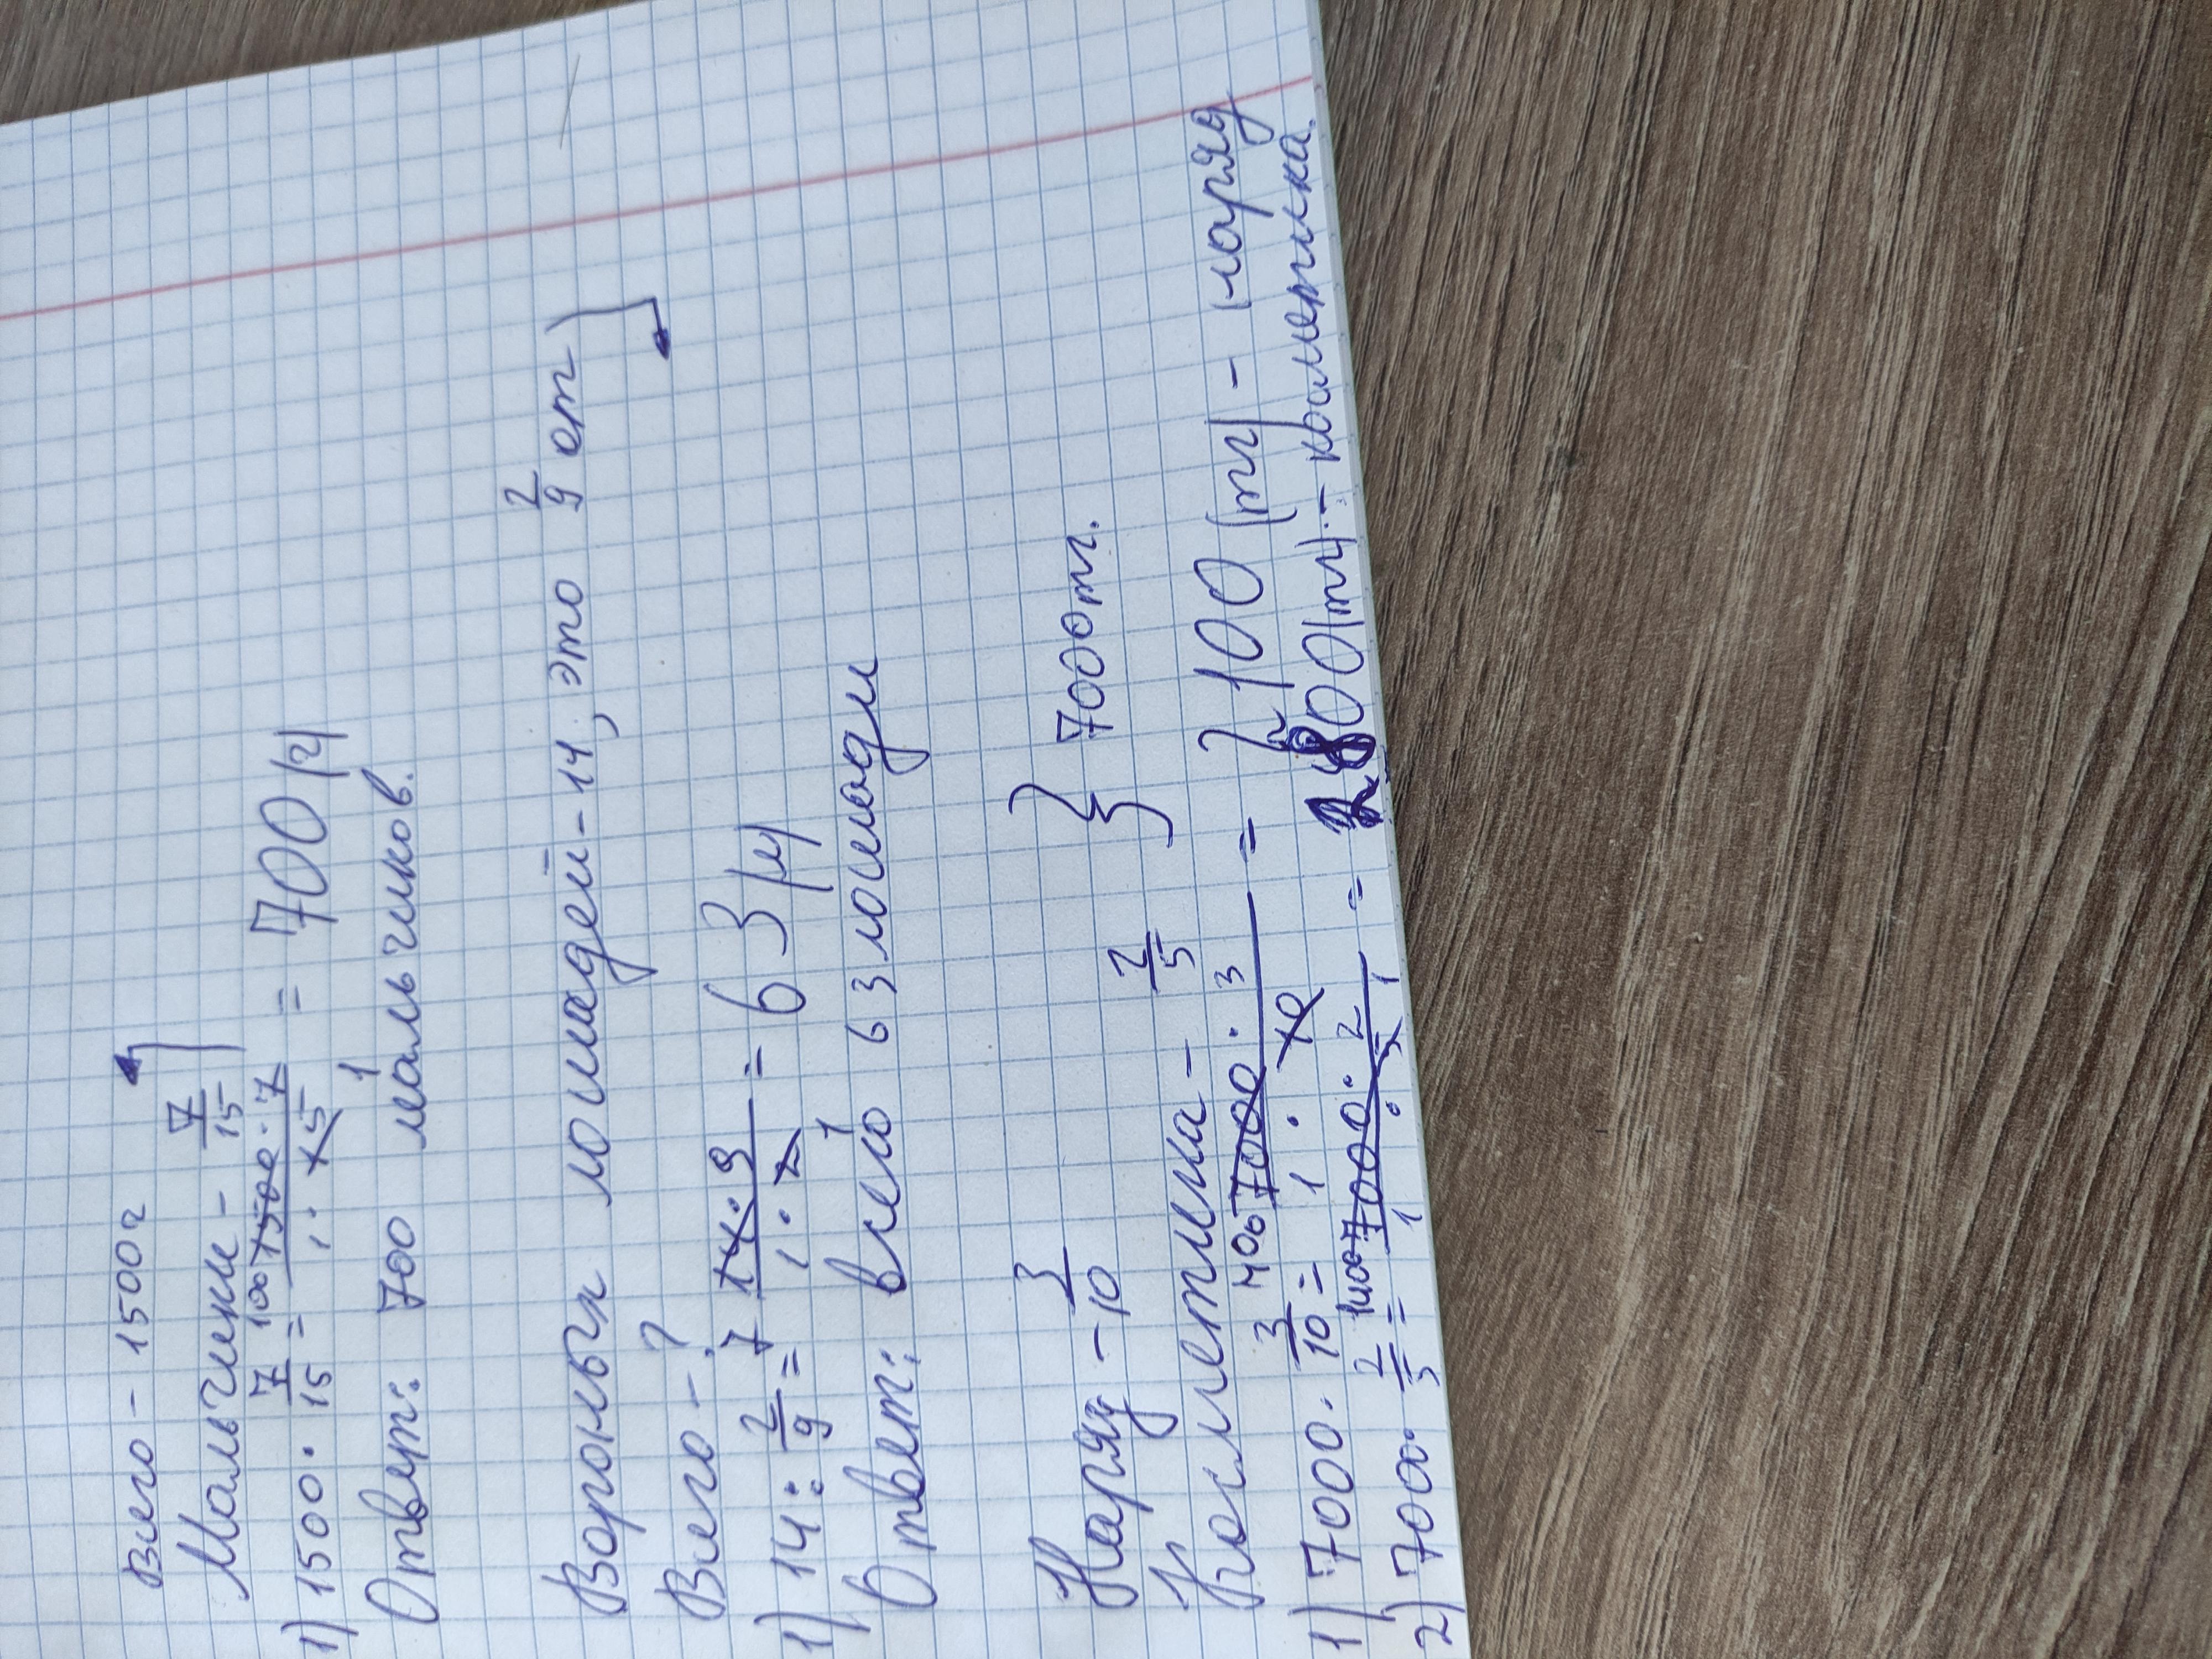 Всего - 1500ч
Мальчики - 7/15
1) 1500 · 7/15 = 100 1500 · 7 / 1 · 15 1 = 700 (ч)
Ответ: 700 мальчиков.
Вороных лошадей - 14, это 2/9 от
Всего - ?
1) 14 : 2/9 = 7 14 · 9 / 1 · 2 1 = 63 (л)
Ответ: всего 63 лошади
Наряд - 3/10
Косметика - 2/5 } 7000тг.
1) 7000 · 3/10 = 700 7000 · 3 / 1 · 10 = 2100 (тг) - наряд
2) 7000 · 2/5 = 1400 7000 · 2 / 1 · 5 1 = 2800 (тг) - косметика.